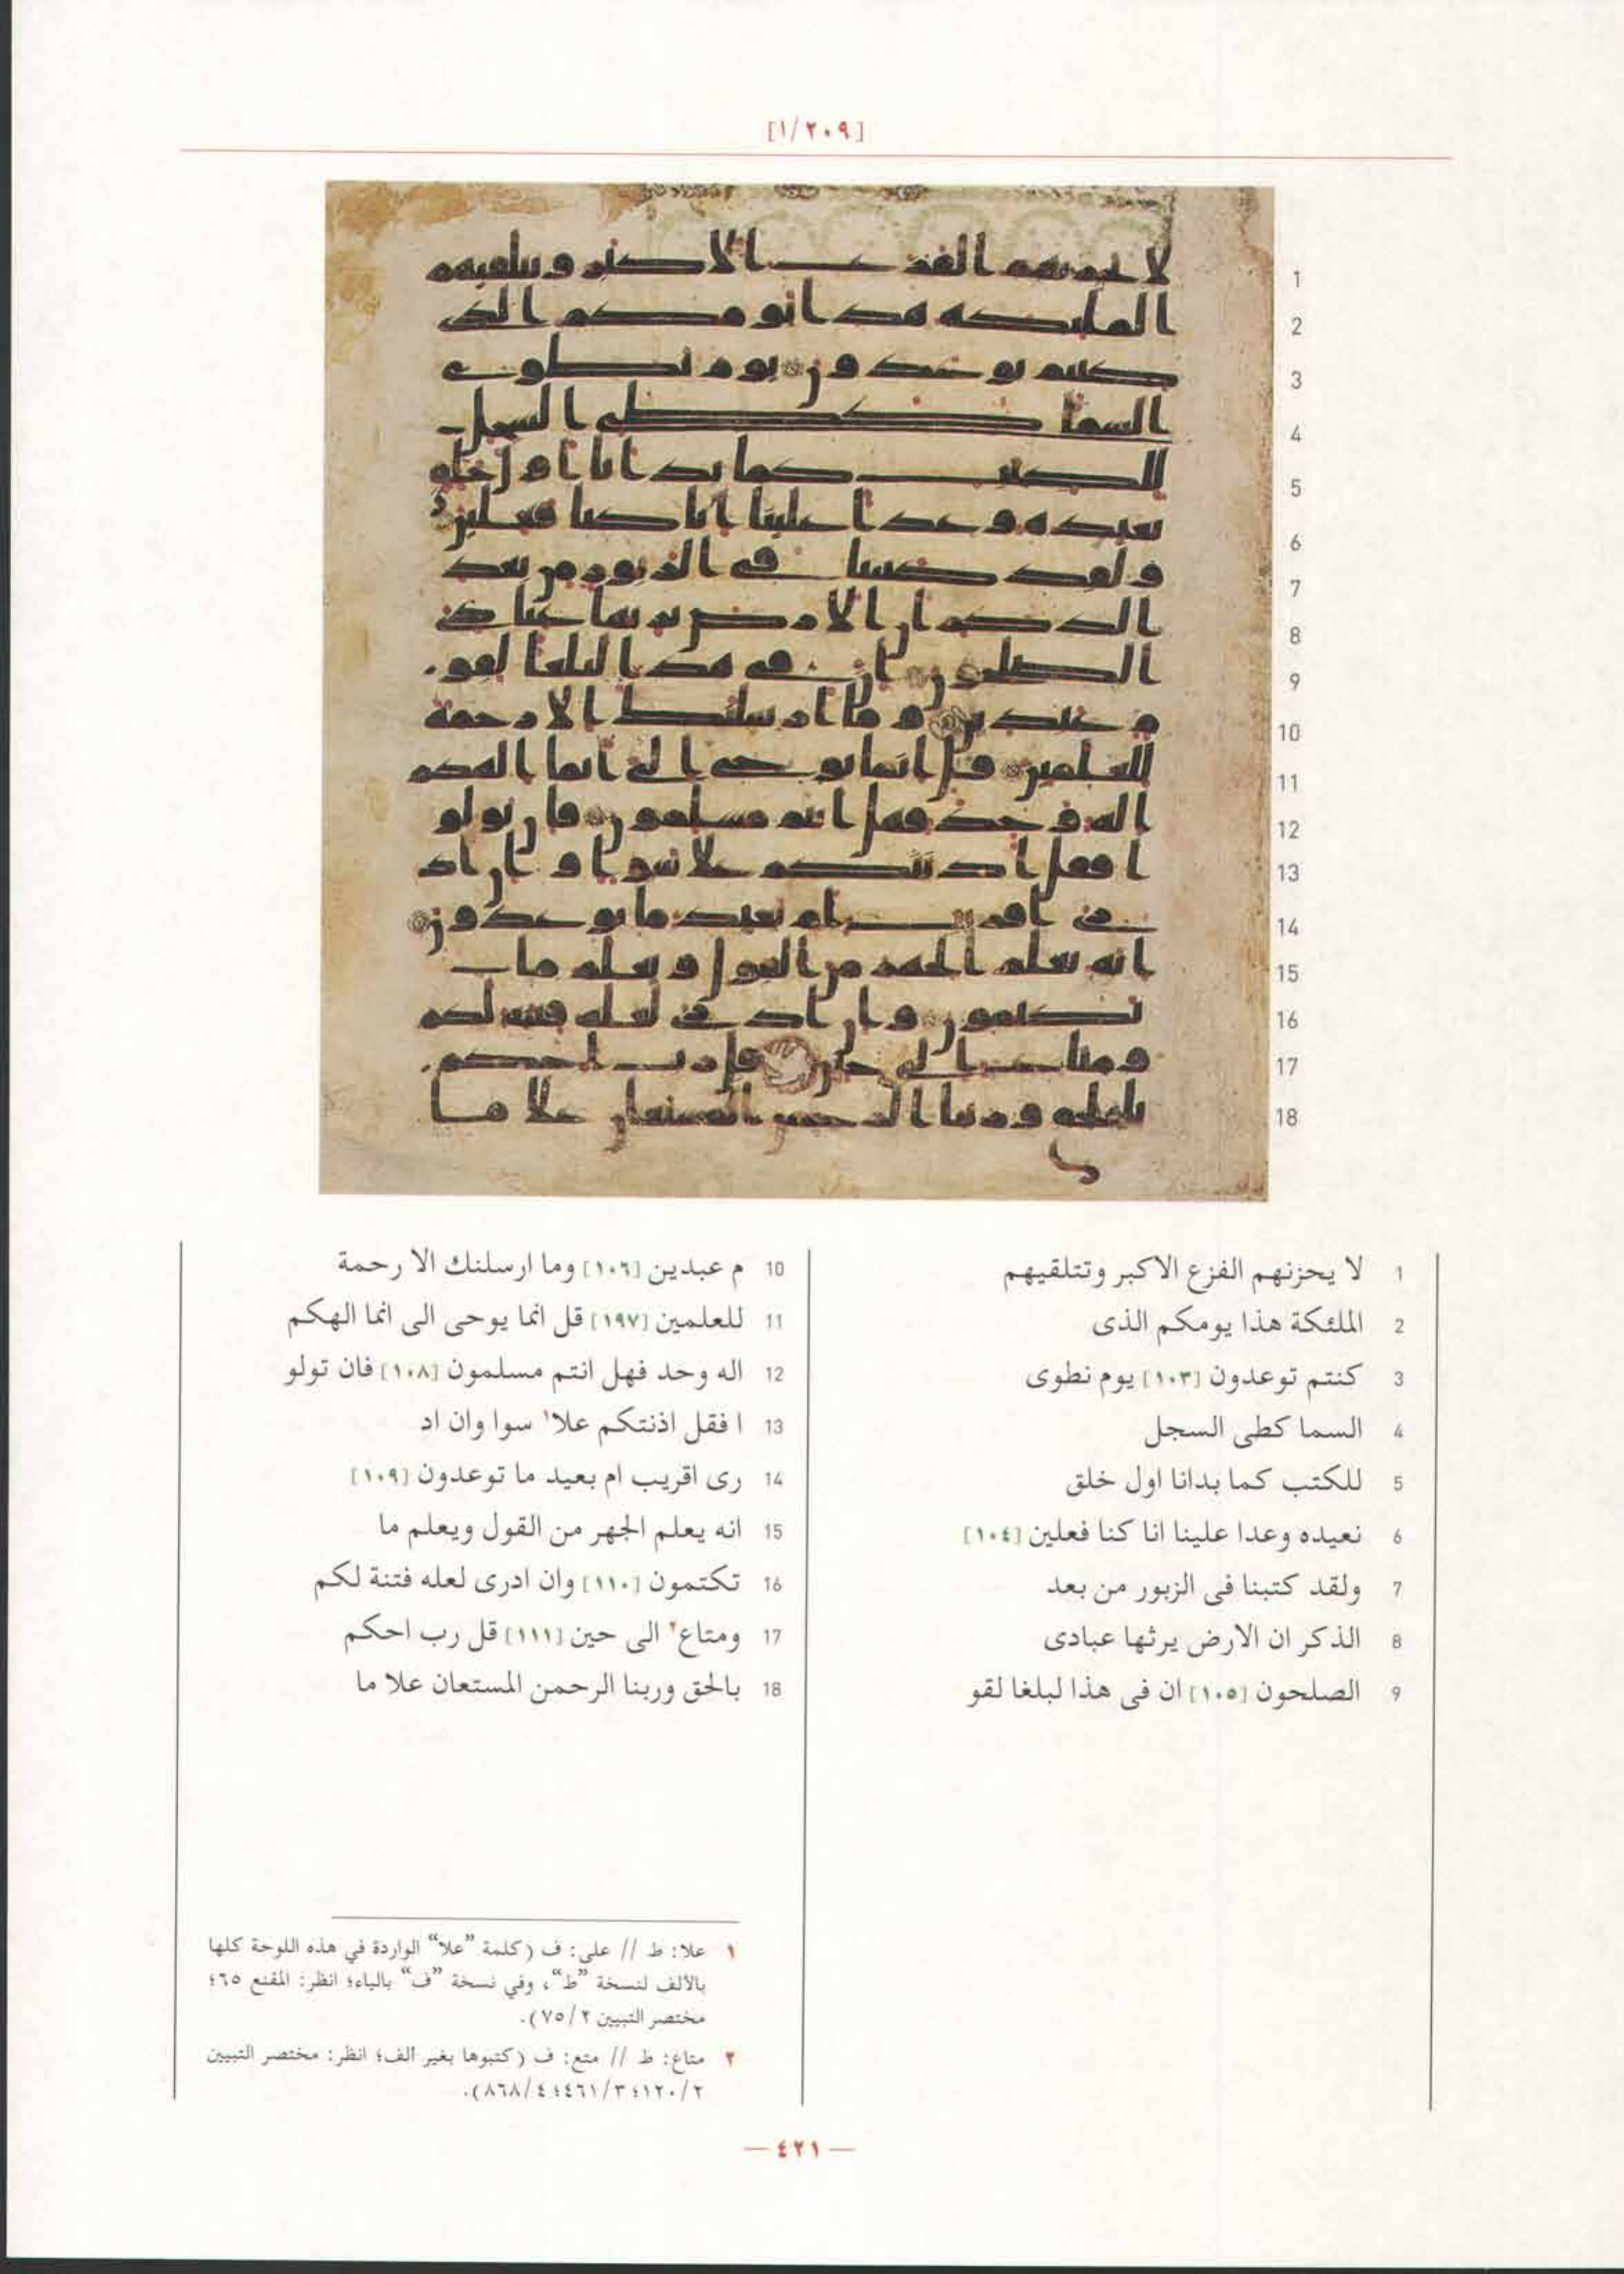 [١/٢٠٩]
1 لا يحزنهم الفزع الاكبر وتتلقيهم
2 الملئكة هذا يومكم الذى
3 كنتم توعدون [١٠٣] يوم نطوى
4 السما كطى السجل
5 للكتب كما بدانا اول خلق
6 نعيده وعدا علينا انا كنا فعلين [١٠٤]
7 ولقد كتبنا فى الزبور من بعد
8 الذكر ان الارض يرثها عبادى
9 الصلحون [١٠٥] ان فى هذا لبلغا لقو
10 م عبدين [١٠٦] وما ارسلنك الا رحمة
11 للعلمين [١٩٧] قل انما يوحى الى انما الهكم
12 اله وحد فهل انتم مسلمون [١٠٨] فان تولو
13 ا فقل اذنتكم علا١ سوا وان اد
14 رى اقريب ام بعيد ما توعدون [١٠٩]
15 انه يعلم الجهر من القول ويعلم ما
16 تكتمون [١١٠] وان ادرى لعله فتنة لكم
17 ومتاع٢ الى حين [١١١] قل رب احكم
18 بالحق وربنا الرحمن المستعان علا ما
١ علا: ط // على: ف (كلمة "علا" الواردة في هذه اللوحة كلها
بالألف لنسخة "ط"، وفي نسخة "ف" بالياء؛ انظر: المقنع ٦٥؛
مختصر التبيين ٢/٧٥).
٢ متاع: ط // متع: ف (كتبوها بغير الف؛ انظر: مختصر التبيين
٢/١٢٠؛ ٣/٤٦١؛ ٤/٨٦٨).
— ٤٢١ —